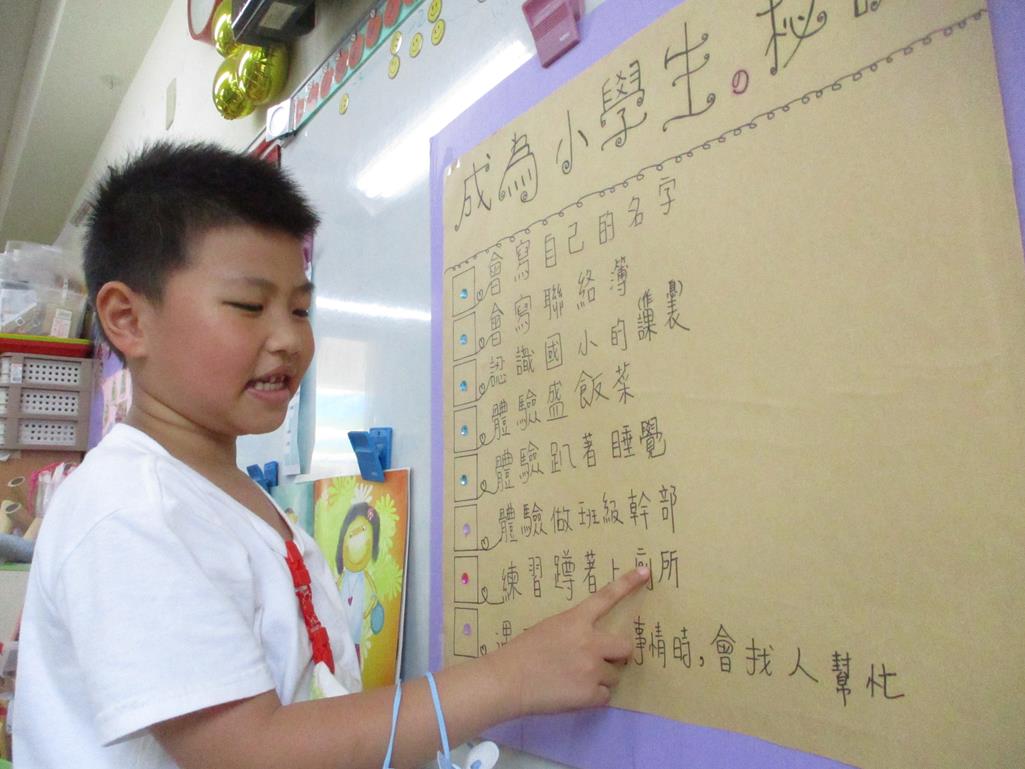 成為小學生の秘
會寫自己的名字
會寫聯絡簿
認識國小的課表(作息)
體驗盛飯菜
體驗趴著睡覺
體驗做班級幹部
練習蹲著上廁所
遇 事情時,會找人幫忙